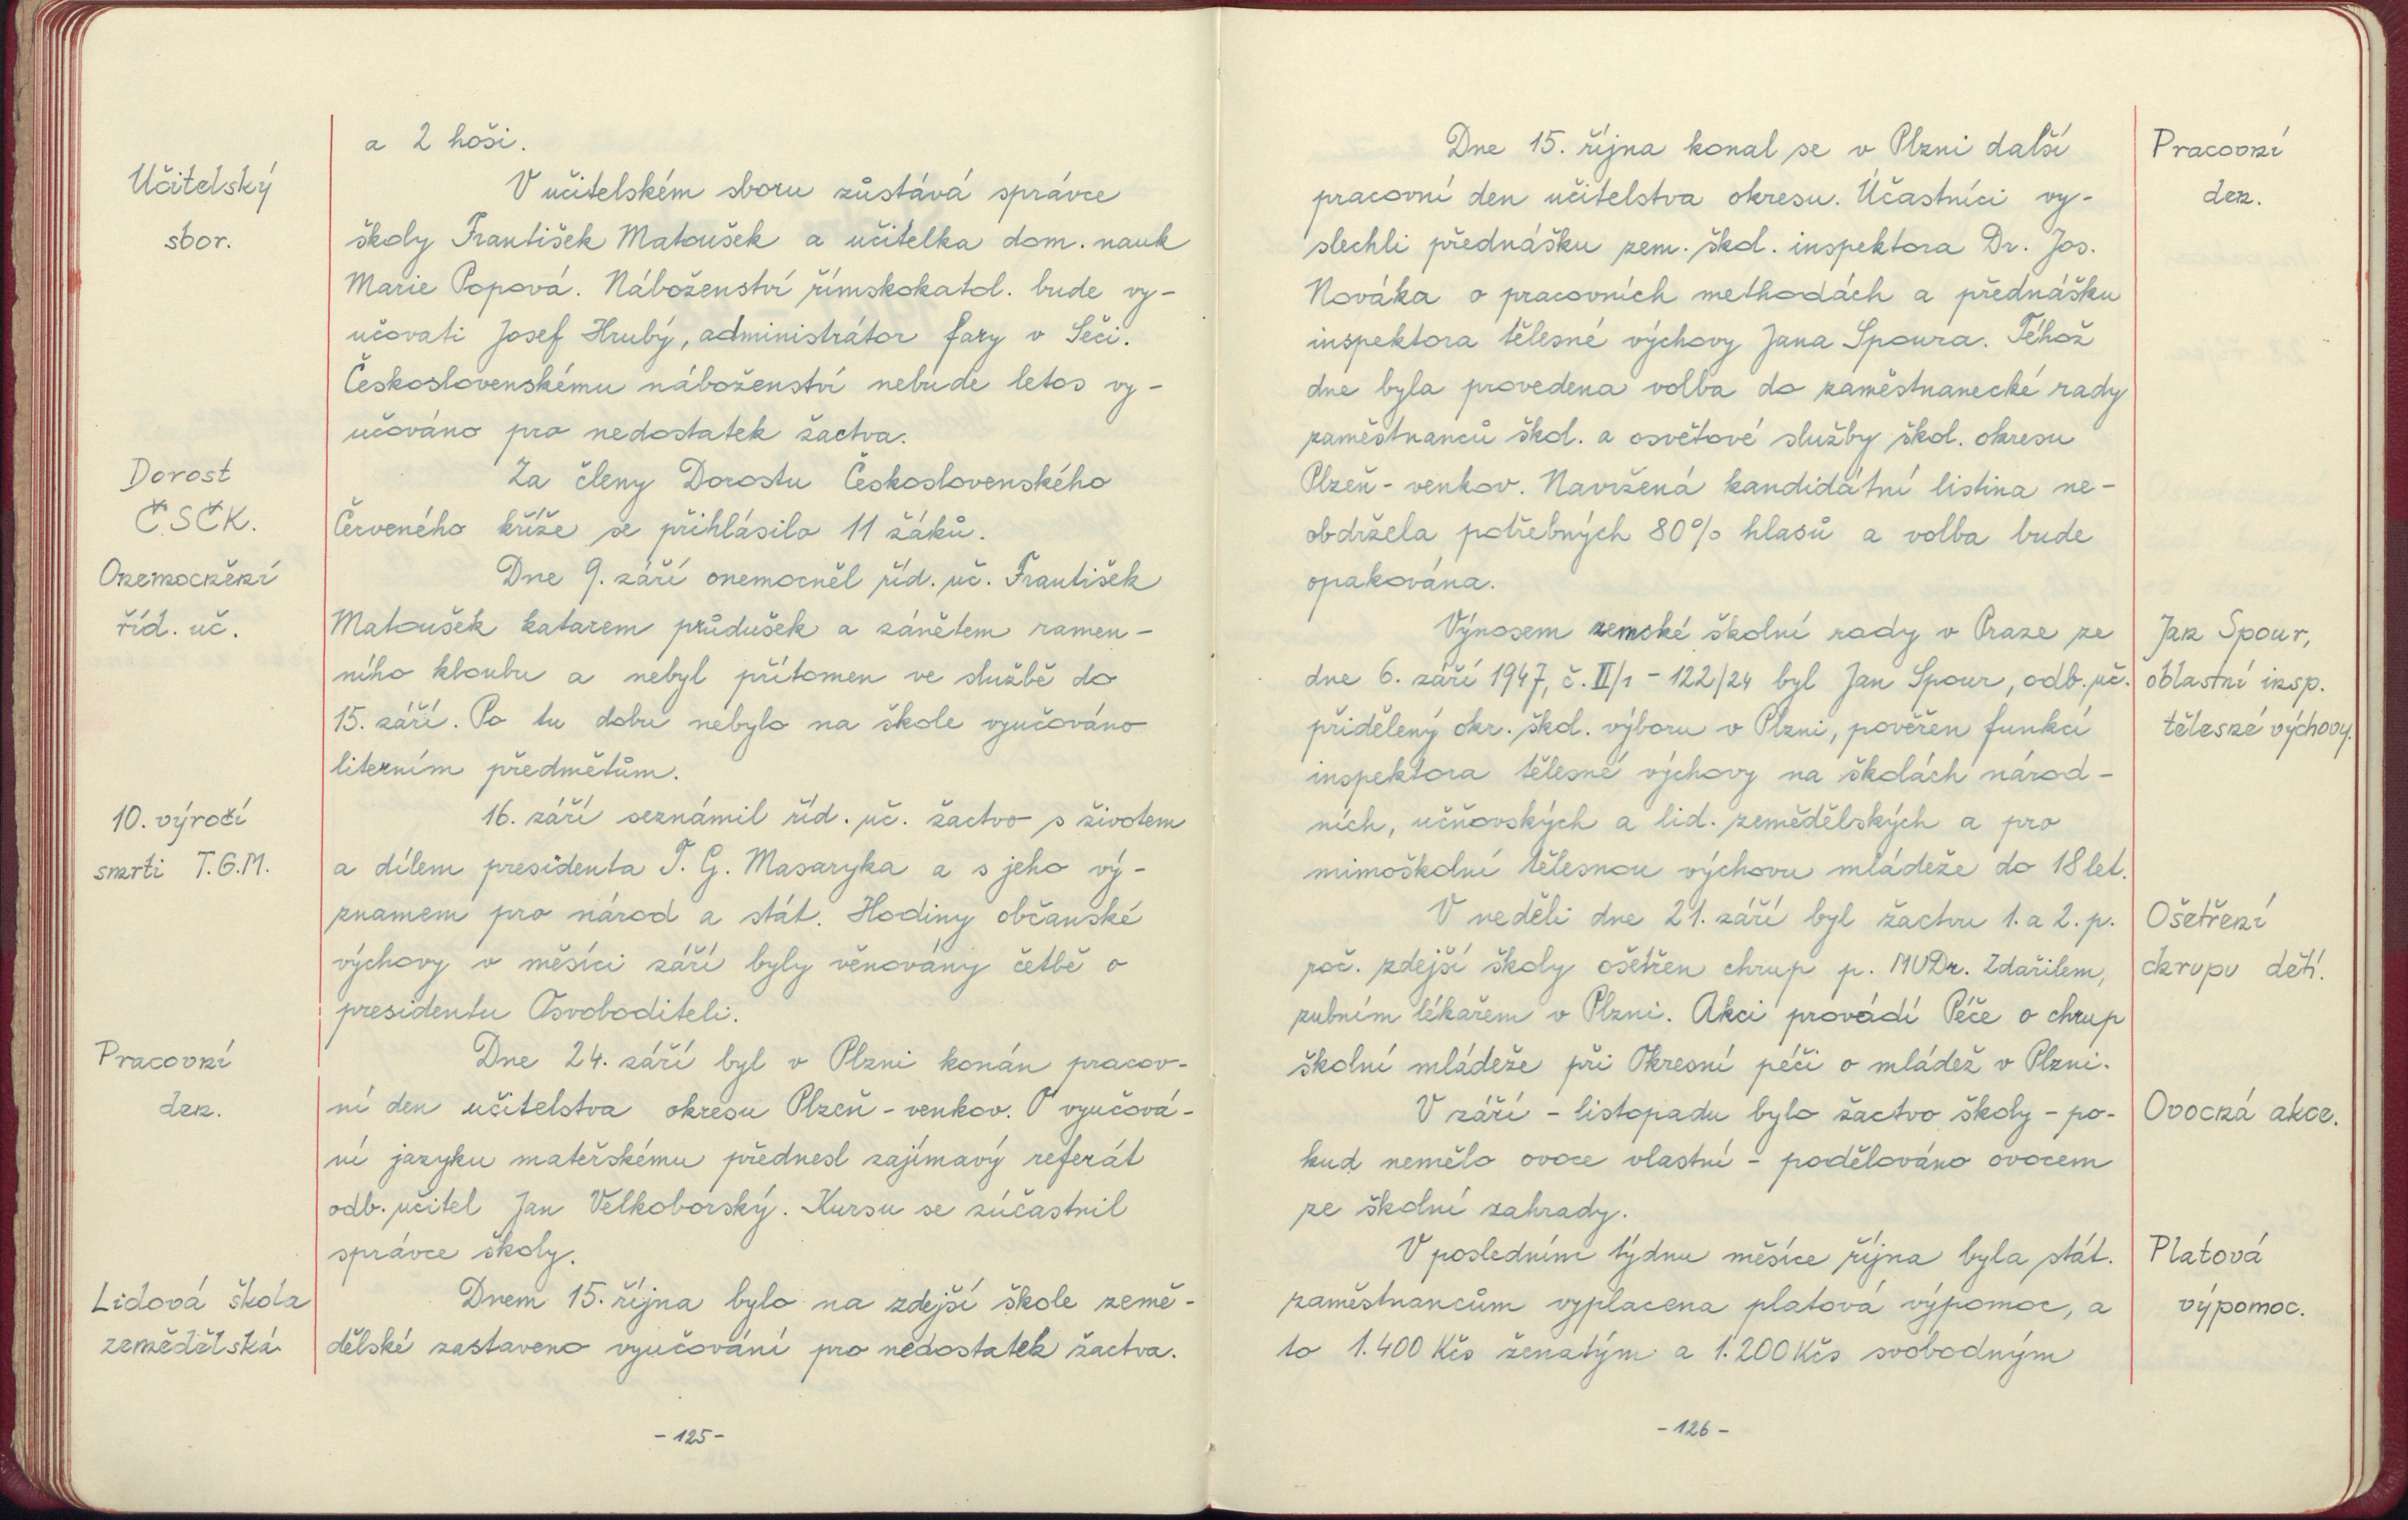 a 2 hoši.
Učitelský
sbor.
V učitelském sboru zůstává správce
školy František Matoušek a učitelka dom. nauk
Marie Popová. Náboženství římskokatol. bude vy-
učovati Josef Hrubý, administrátor fary v Seči.
Československému náboženství nebude letos vy-
učováno pro nedostatek žactva.
Dorost
ČSČK.
Za členy Dorostu Československého
Červeného kříže se přihlásilo 11 žáků.
Onemocnění
říd. uč.
Dne 9. září onemocněl říd. uč. František
Matoušek katarem průdušek a zánětem ramen-
ního kloubu a nebyl přítomen ve službě do
15. září. Po tu dobu nebylo na škole vyučováno
literním předmětům.
10. výročí
smrti T.G.M.
16. září seznámil říd. uč. žactvo s životem
a dílem presidenta T. G. Masaryka a s jeho vý-
znamem pro národ a stát. Hodiny občanské
výchovy v měsíci září byly věnovány četbě o
presidentu Osvoboditeli.
Pracovní
den.
Dne 24. září byl v Plzni konán pracov-
ní den učitelstva okresu Plzeň - venkov. O vyučová-
ní jazyku mateřskému přednesl zajímavý referát
odb. učitel Jan Velkoborský. Kursu se zúčastnil
správce školy.
Lidová škola
zemědělská.
Dnem 15. října bylo na zdejší škole země-
dělské zastaveno vyučování pro nedostatek žactva.
- 125 -
Pracovní
den.
Dne 15. října konal se v Plzni další
pracovní den učitelstva okresu. Účastníci vy-
slechli přednášku zem. škol. inspektora Dr. Jos.
Nováka o pracovních methodách a přednášku
inspektora tělesné výchovy Jana Spoura. Téhož
dne byla provedena volba do zaměstnanecké rady
zaměstnanců škol. a osvětové služby škol. okresu
Plzeň - venkov. Navržená kandidátní listina ne-
obdržela potřebných 80% hlasů a volba bude
opakována.
Jan Spour,
oblastní insp.
tělesné výchovy.
Výnosem zemské školní rady v Praze ze
dne 6. září 1947, č. II/1 - 122/24 byl Jan Spour, odb. uč.
přidělený okr. škol. výboru v Plzni, pověřen funkcí
inspektora tělesné výchovy na školách národ-
ních, učňovských a lid. zemědělských a pro
mimoškolní tělesnou výchovu mládeže do 18 let.
Ošetření
chrupu dětí.
V neděli dne 21. září byl žactvu 1. a 2. p.
roč. zdejší školy ošetřen chrup p. MUDr. Zdařilem,
zubním lékařem v Plzni. Akci provádí Péče o chrup
školní mládeže při Okresní péči o mládež v Plzni.
Ovocná akce.
V září - listopadu bylo žactvo školy - po-
kud nemělo ovoce vlastní - podělováno ovocem
ze školní zahrady.
Platová
výpomoc.
V posledním týdnu měsíce října byla stát.
zaměstnancům vyplacena platová výpomoc, a
to 1.400 Kčs ženatým a 1.200 Kčs svobodným
- 126 -